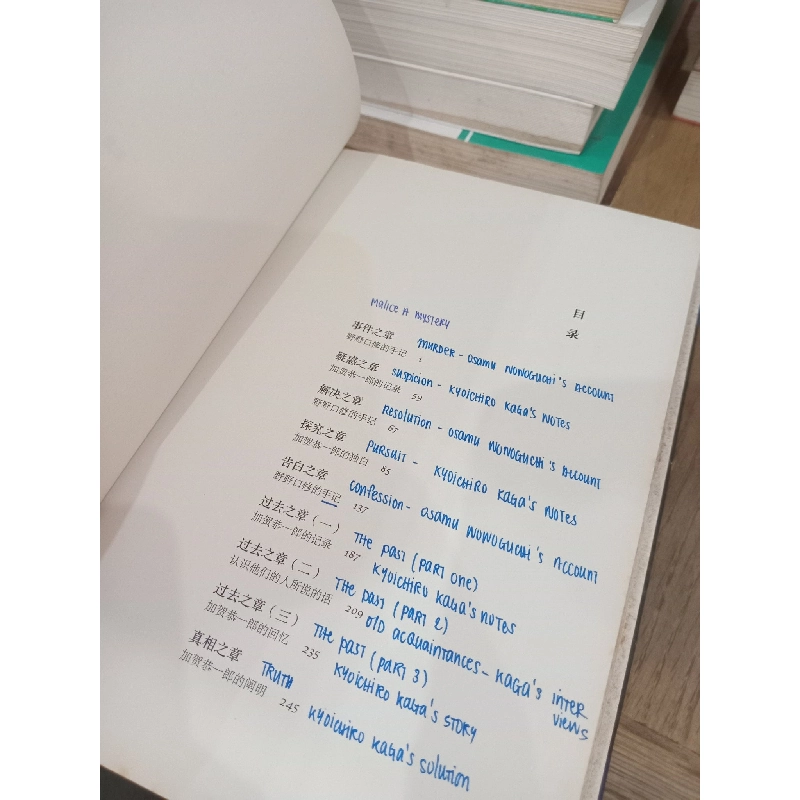 目
录
Malice A Mystery
事件之章 MURDER - OSAMU NONOGUCHI'S ACCOUNT
野野口修的手记 1
疑惑之章 SUSPICION - KYOICHIRO KAGA'S NOTES
加贺恭一郎的记录 59
解决之章 RESOLUTION - OSAMU NONOGUCHI'S ACCOUNT
野野口修的手记 67
探究之章 PURSUIT - KYOICHIRO KAGA'S NOTES
加贺恭一郎的独白 85
告白之章 CONFESSION - OSAMU NONOGUCHI'S ACCOUNT
野野口修的手记 137
过去之章（一） THE PAST (PART ONE)
加贺恭一郎的记录 187 KYOICHIRO KAGA'S NOTES
过去之章（二） THE PAST (PART 2)
认识他们的人所说的话 209 OLD ACQUAINTANCES - KAGA'S INTER
VIEWS
过去之章（三） THE PAST (PART 3)
加贺恭一郎的回忆 235 KYOICHIRO KAGA'S STORY
真相之章 TRUTH
加贺恭一郎的阐明 245 KYOICHIRO KAGA'S SOLUTION